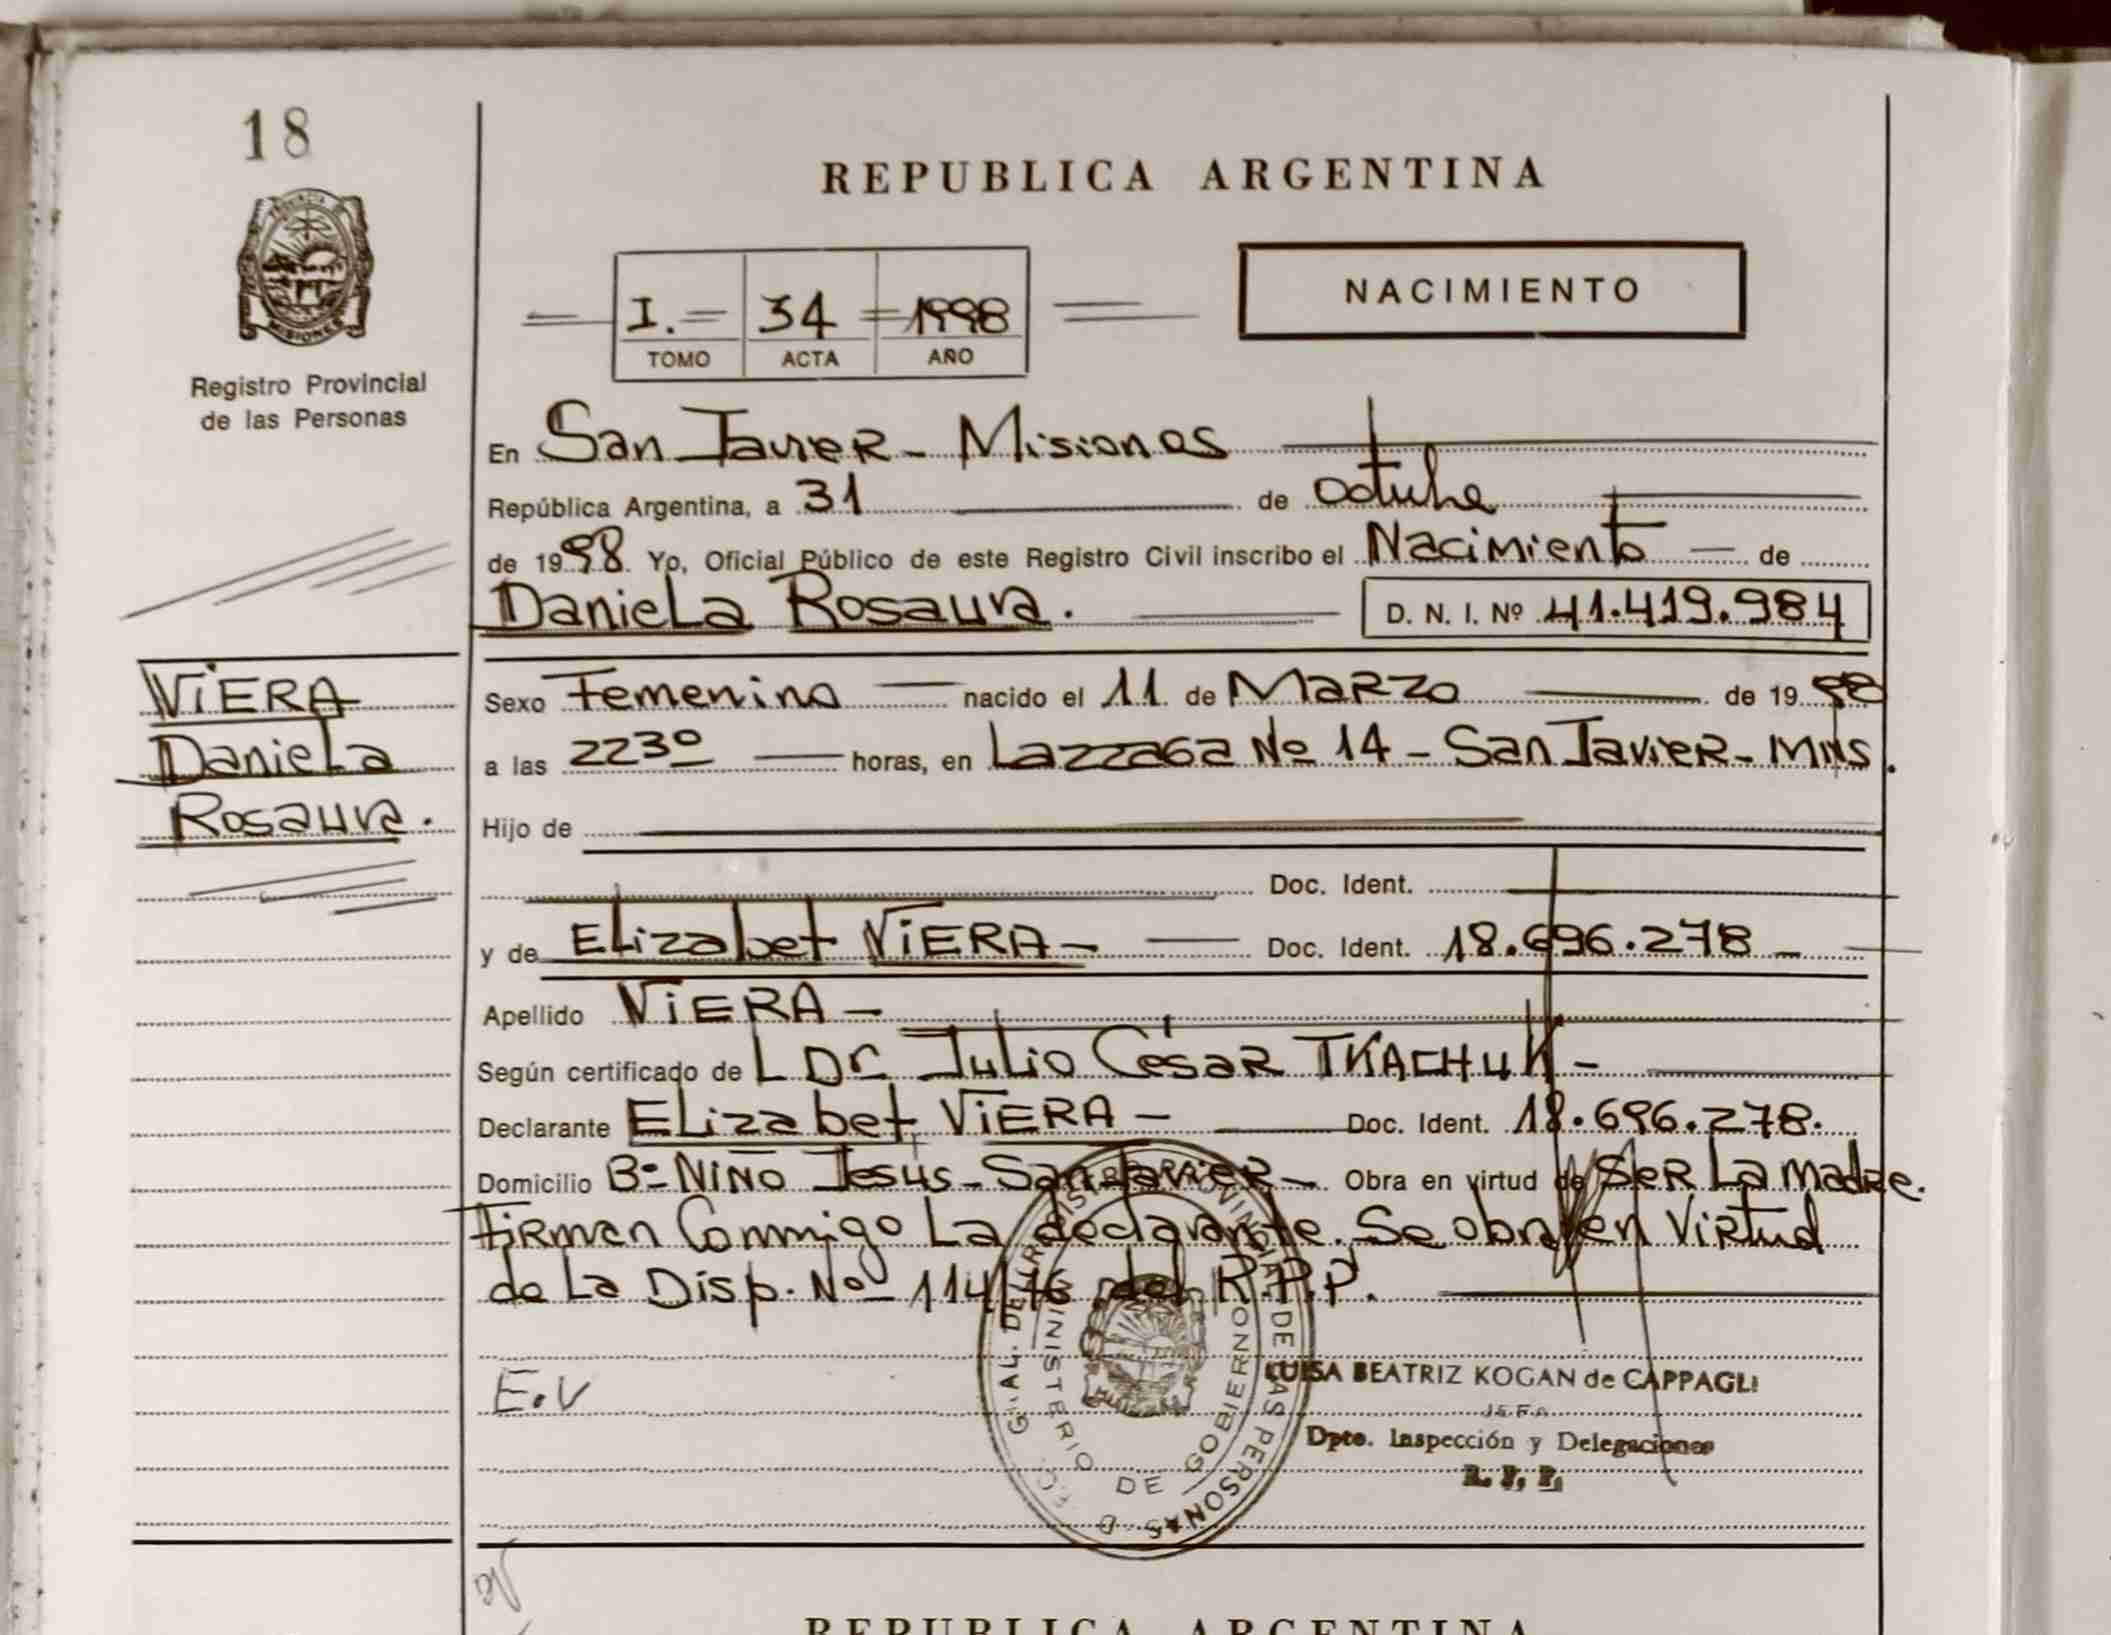 18
REPUBLICA ARGENTINA
I. 34 1998
TOMO ACTA AÑO
NACIMIENTO
Registro Provincial
de las Personas
En San Javier - Misiones
República Argentina, a 31 de octubre
de 1998. Yo, Oficial Público de este Registro Civil inscribo el Nacimiento de
Daniela Rosaura. D. N. I. Nº 41.419.984
VIERA
Daniela
Rosaura.
Sexo Femenino nacido el 11 de Marzo de 1998
a las 2230 horas, en Lazzaga Nº 14 - San Javier - Mns.
Hijo de
Doc. Ident.
y de Elizabet VIERA - Doc. Ident. 18.696.278
Apellido VIERA -
Según certificado de L Dr Julio César TKACHUK -
Declarante Elizabet VIERA - Doc. Ident. 18.696.278.
Domicilio Bº Niño Jesús - San Javier - Obra en virtud de Ser La madre.
Firman Conmigo La declarante. Se obra en Virtud
de La Disp. Nº 114/76 del R.P.P.
E.V
LUISA BEATRIZ KOGAN de CAPPAGLI
JEFA
Dpto. Inspección y Delegaciones
R. P. P.
REGISTRO PROVINCIAL DE LAS PERSONAS
MINISTERIO DE GOBIERNO
REPUBLICA ARGENTINA